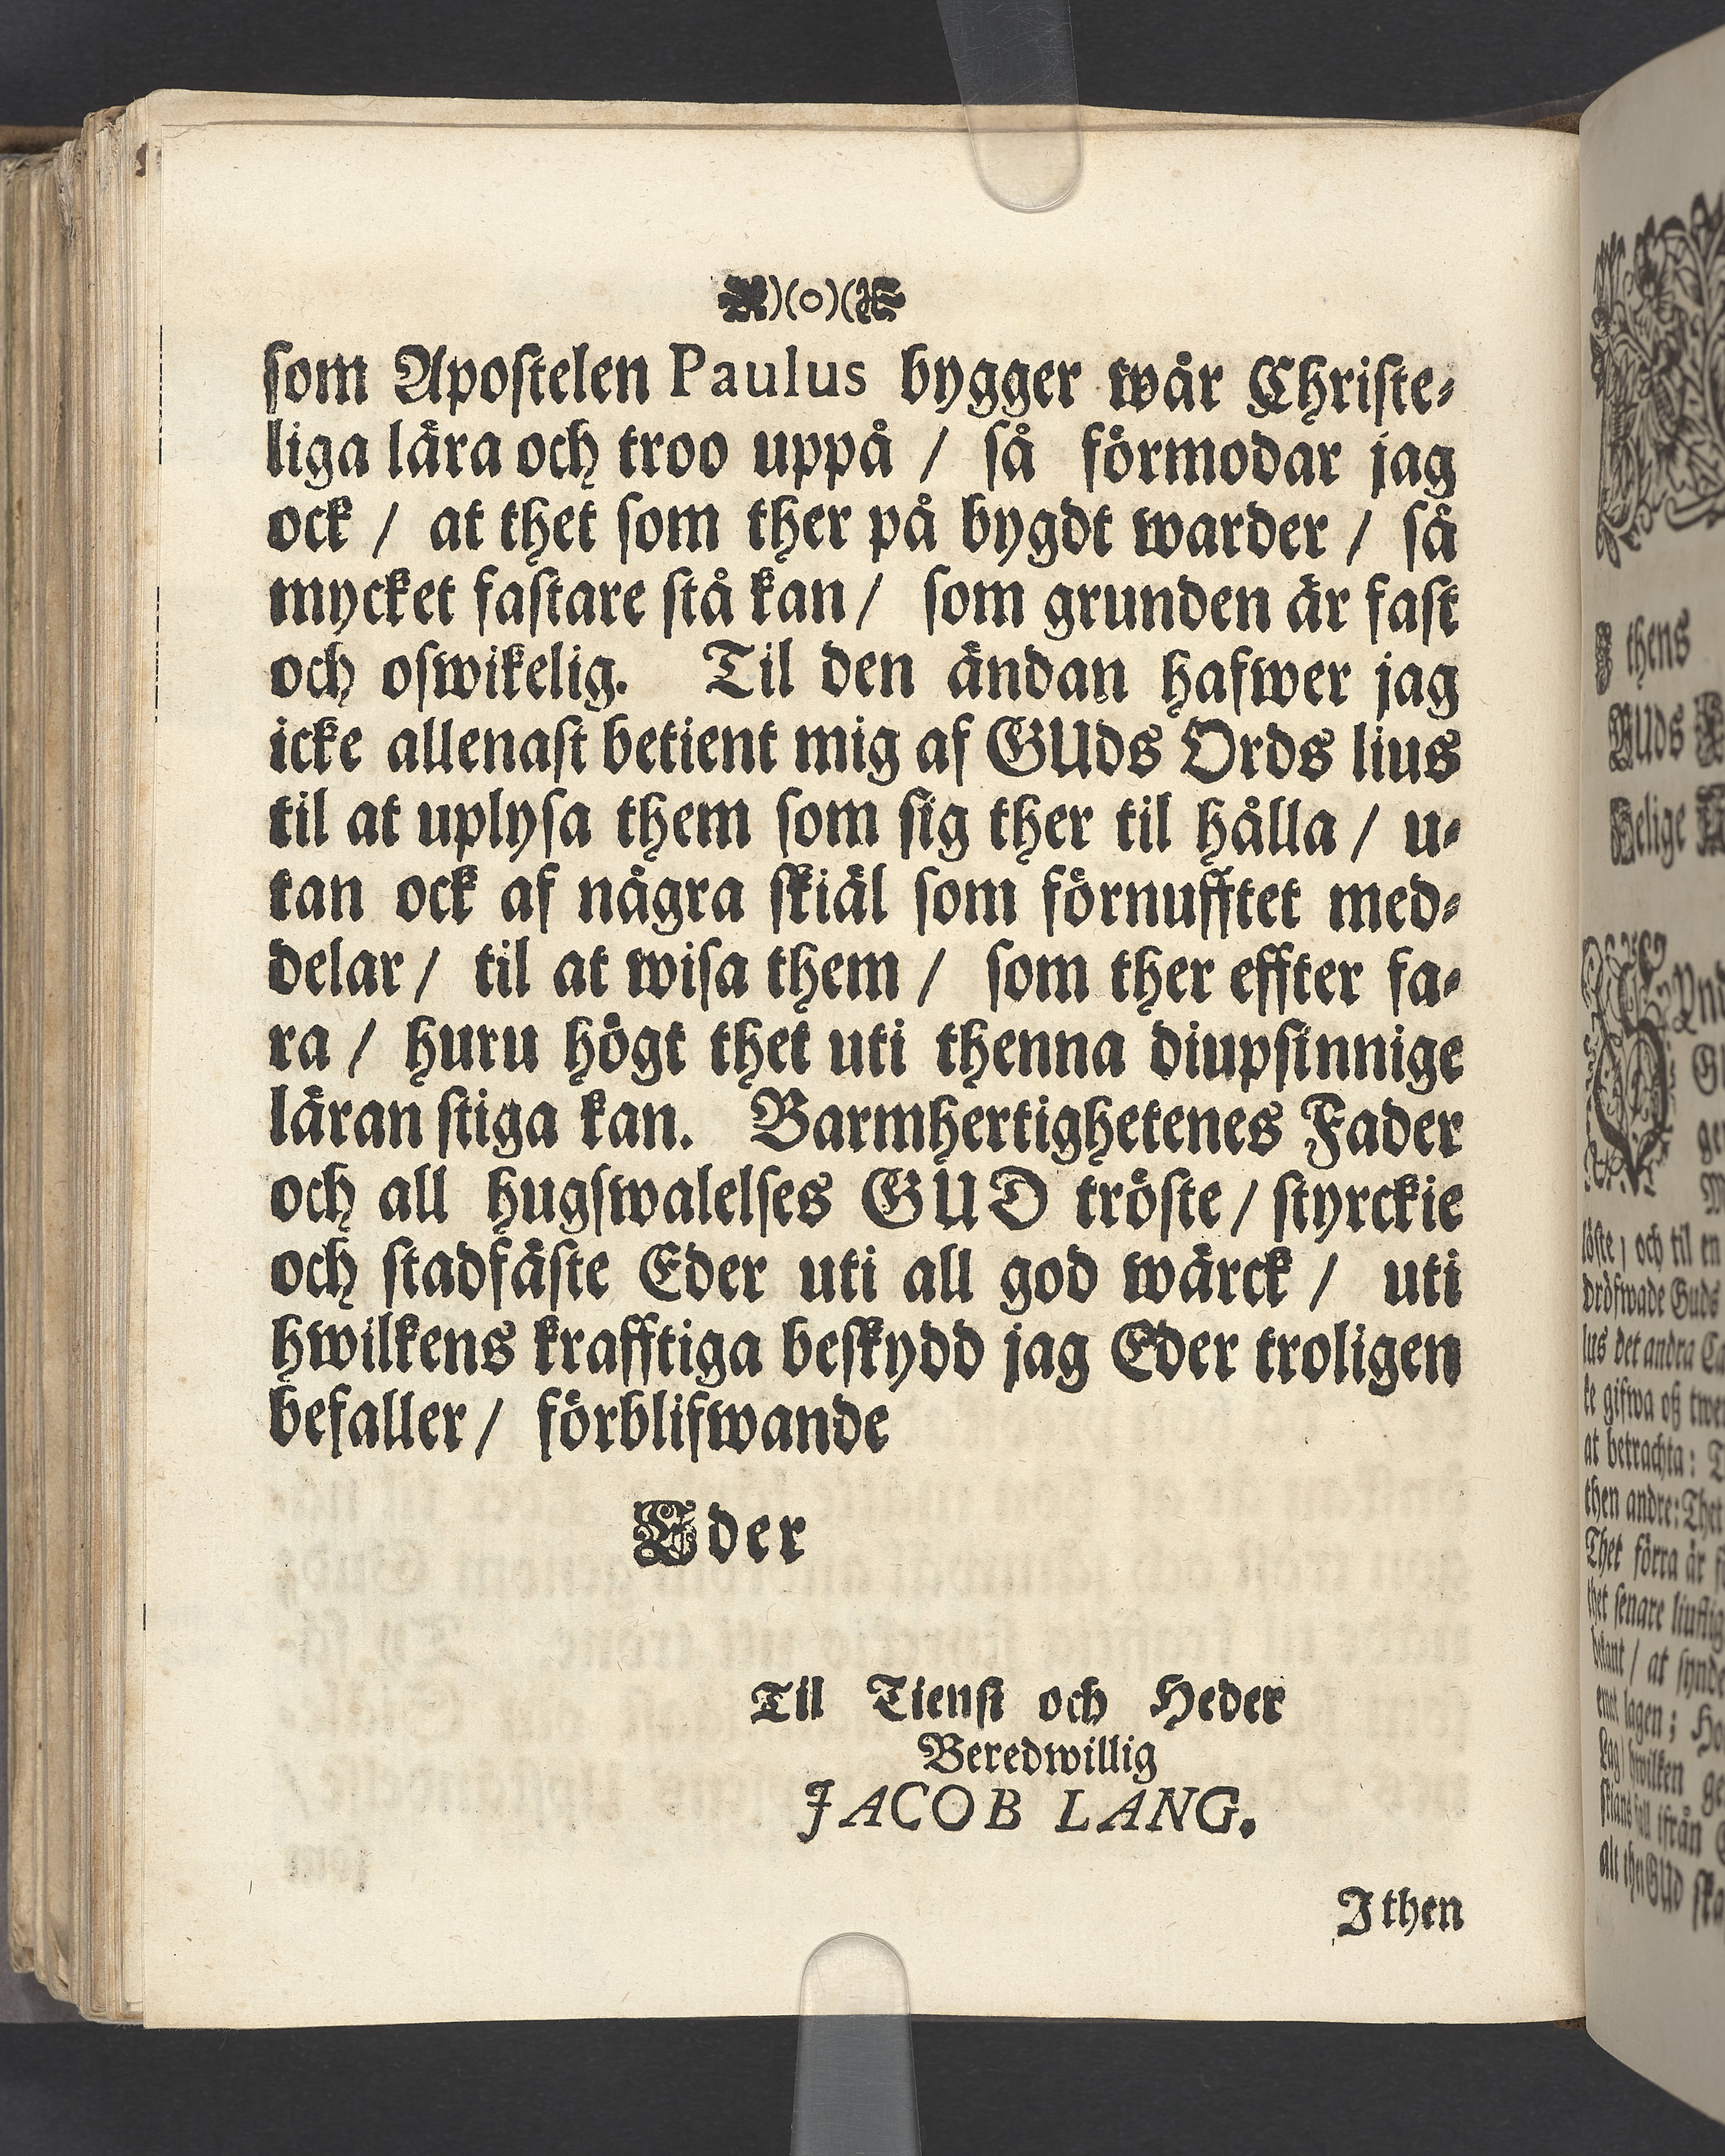 )(o)(
som Apostelen Paulus bygger wår Christe-
liga lära och troo uppå / så förmodar jag
ock / at thet som ther på bygdt warder / så
mycket fastare stå kan / som grunden är fast
och oswikelig. Til den ändan hafwer jag
icke allenast betient mig af GUds Ords lius
til at uplysa them som sig ther til hålla / u-
tan ock af några skiäl som förnufftet med-
delar / til at wisa them / som ther effter fa-
ra / huru högt thet uti thenna diupsinnige
läran stiga kan. Barmhertighetenes Fader
och all hugswalelses GUD tröste / styrckie
och stadfäste Eder uti all god wärck / uti
hwilkens krafftiga beskydd jag Eder troligen
befaller / förblifwande
Eder
Til Tienst och Heder
Beredwillig
JACOB LANG.
I then
thens
GUds
Helige
löste / och til en
dröfwade Guds
lus det andra Ca
ke gifwa oß twe
at betrachta: T
then andre: Thet
Thet förra är
thet senare liuflig
bekant / at synde
emot lagen; Ho
Lag / hwilken ge
ifrån
alt thet GUD ska